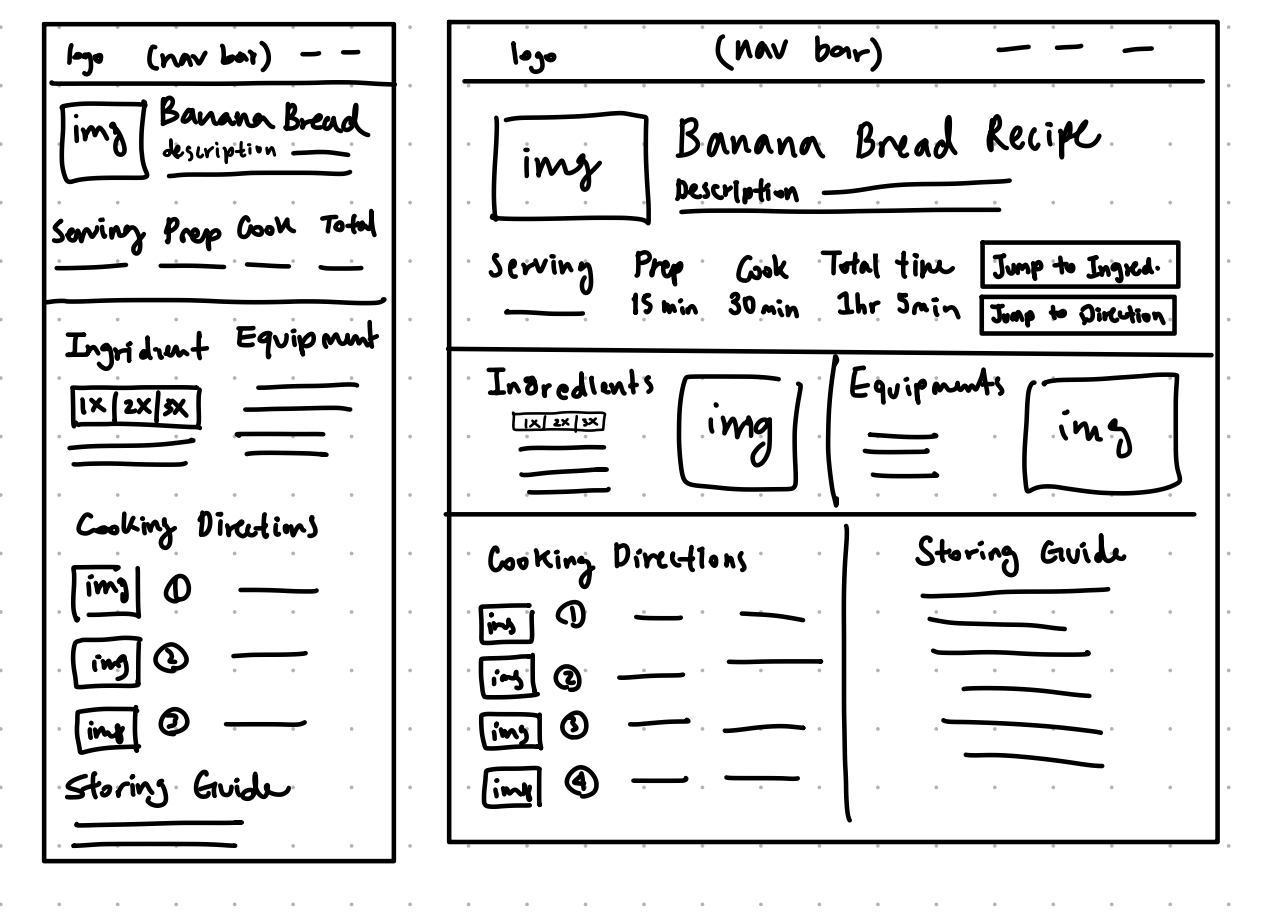 logo (nav bar)
img
Banana Bread
description
Serving Prep Cook Total
Ingridient Equipment
1X 2X 3X
Cooking Directions
img 1
img 2
img 3
Storing Guide
logo (nav bar)
img
Banana Bread Recipe
Description
Serving Prep Cook Total time
15 min 30 min 1hr 5min
Jump to Ingred.
Jump to Direction
Ingredients
1X 2X 3X
img
Equipments
img
Cooking Directions
img 1
img 2
img 3
img 4
Storing Guide